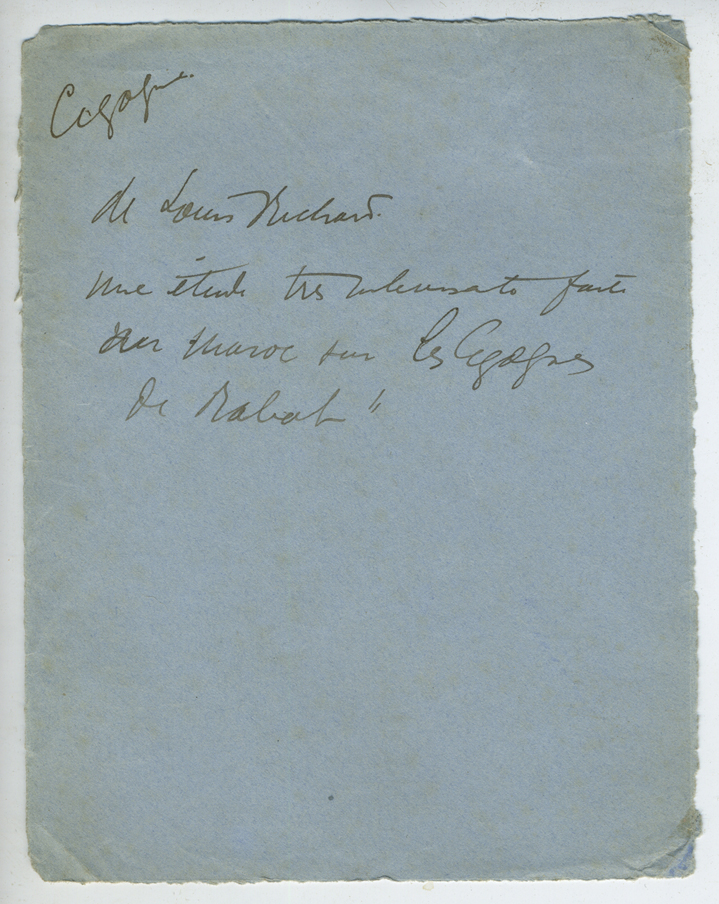 Cigogne.
de Louis Richard.
une étude très intéressante faite
au Maroc sur les Cigognes
de Rabat "